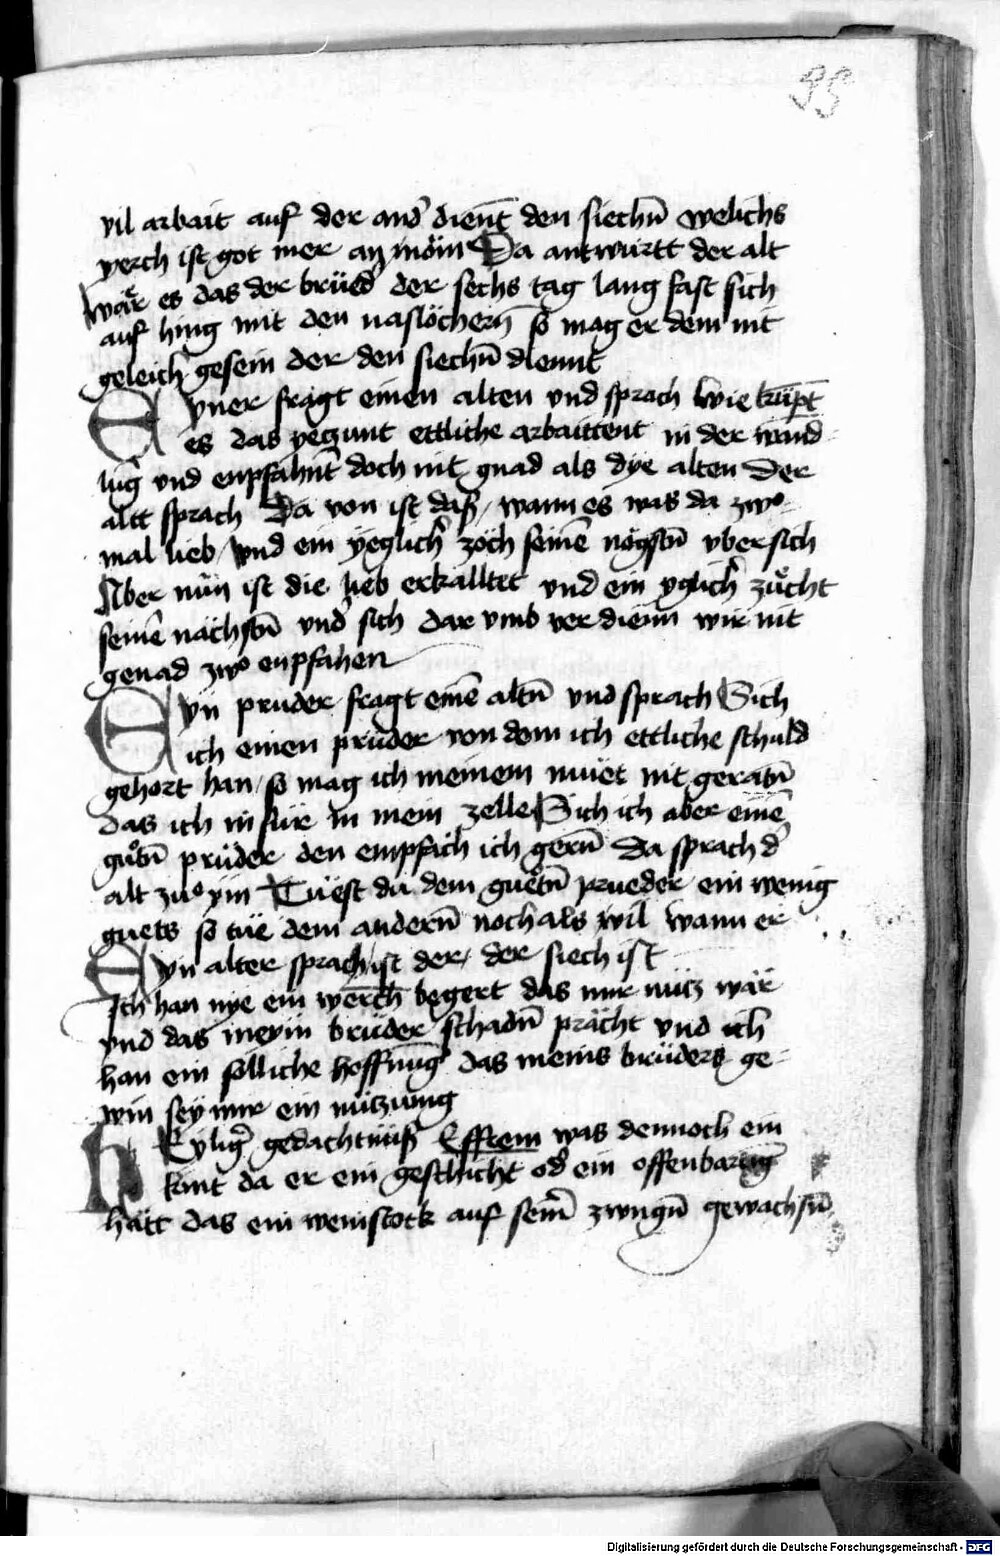 99
vil arbait auf der and᷑ dient den siechn̄ welichs
werch ist got mer an nöm Da antwurtt der alt
wär es das der brüed᷑ der sechs tag lang fast sich
auf hing mit den naslöchern̄ so mag er dem nit
geleich gesein der den siechn̄ dienntt
Eyner fragt einen alten vnd sprach wie kūpt
es das yeczunt ettliche arbaittent in der wand-
lūg vnd enpfahnt̄ doch nit gnad als dye alten Der
altt sprach Da von ist daß / wann es was da zwo
mal lieb / vnd ein yeglich᷑ zoch seinē nögstn̄ vbersich
Aber nün ist die lieb erkalltet vnd ein yglich᷑ züͦcht
seinē nächstn̄ vnd᷑ sich dar vmb ver dienn wir nit
genad zwo enpfahen
Eyn pruder fragt einē altn̄ vnd sprach Sich
ich einen prüder von dem ich ettliche schuld
gehort han / so mag ich meinem müet nit geratn̄
das ich in für in mein zelle Sich ich aber einē
guͦtn̄ prüder den empfäch ich gern̄ Da sprach d᷑
alt zuͦ yin Tüest du dem guetn̄ prueder ein wenig
guets so tüe dem andern̄ noch als vil wann er
Eyn alter sprach ist der / der siech ist
Ich han nye ein werch begert das mir nücz wär
vnd das meym brüder schadn̄ prächt vnd ich
han ein solliche hoffnūg das meins brüders ge-
win sey mir ein nüczung
Heylig᷑ gedachtnüß Effrem was dennoch ein
kint da er ein geschicht od᷑ ein offenbarūg
hätt das ein weinstock auf sein᷑ zwngn̄ gewachsn̄
Digitalisierung gefördert durch die Deutsche Forschungsgemeinschaft - DFG